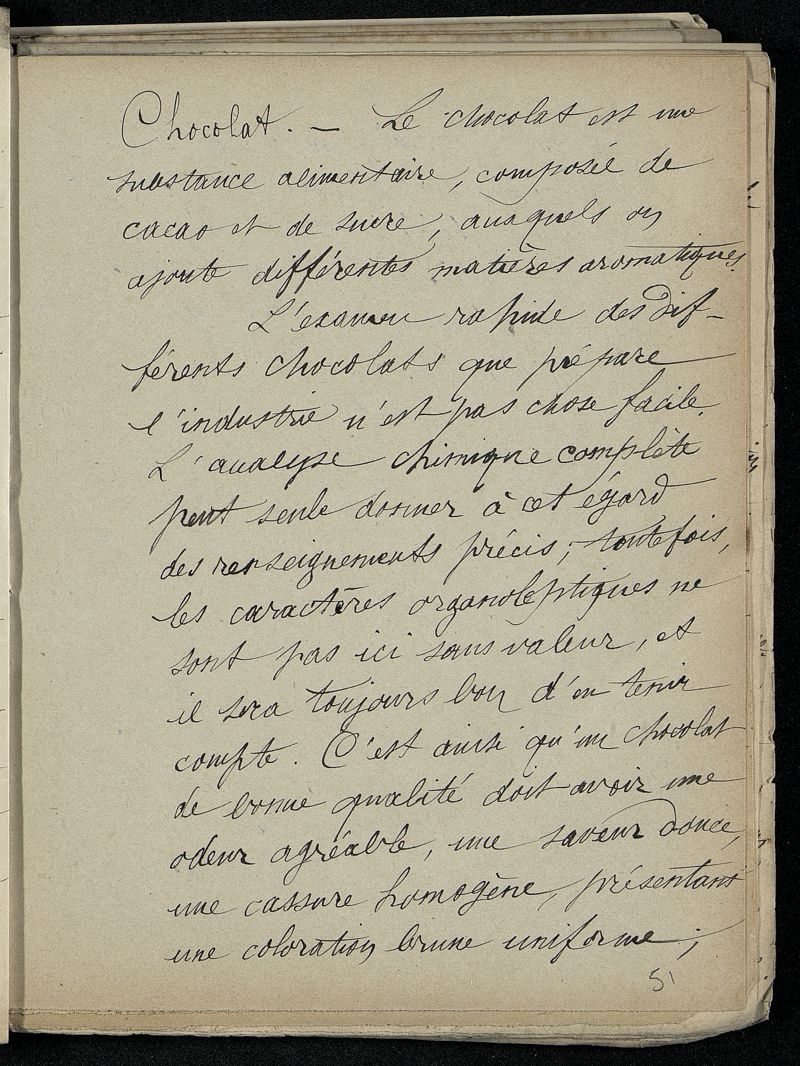 Chocolat. — Le chocolat est une
substance alimentaire, composée de
cacao et de sucre, auxquels on
ajoute différentes matières aromatiques.
L'examen rapide des dif-
férents chocolats que prépare
l'industrie n'est pas chose facile.
L'analyse chimique complète
peut seule donner à cet égard
des renseignements précis; toutefois,
les caractères organoleptiques ne
sont pas ici sans valeur, et
il sera toujours bon d'en tenir
compte. C'est ainsi qu'un chocolat
de bonne qualité doit avoir une
odeur agréable, une saveur douce,
une cassure homogène, présentant
une coloration brune uniforme;
51